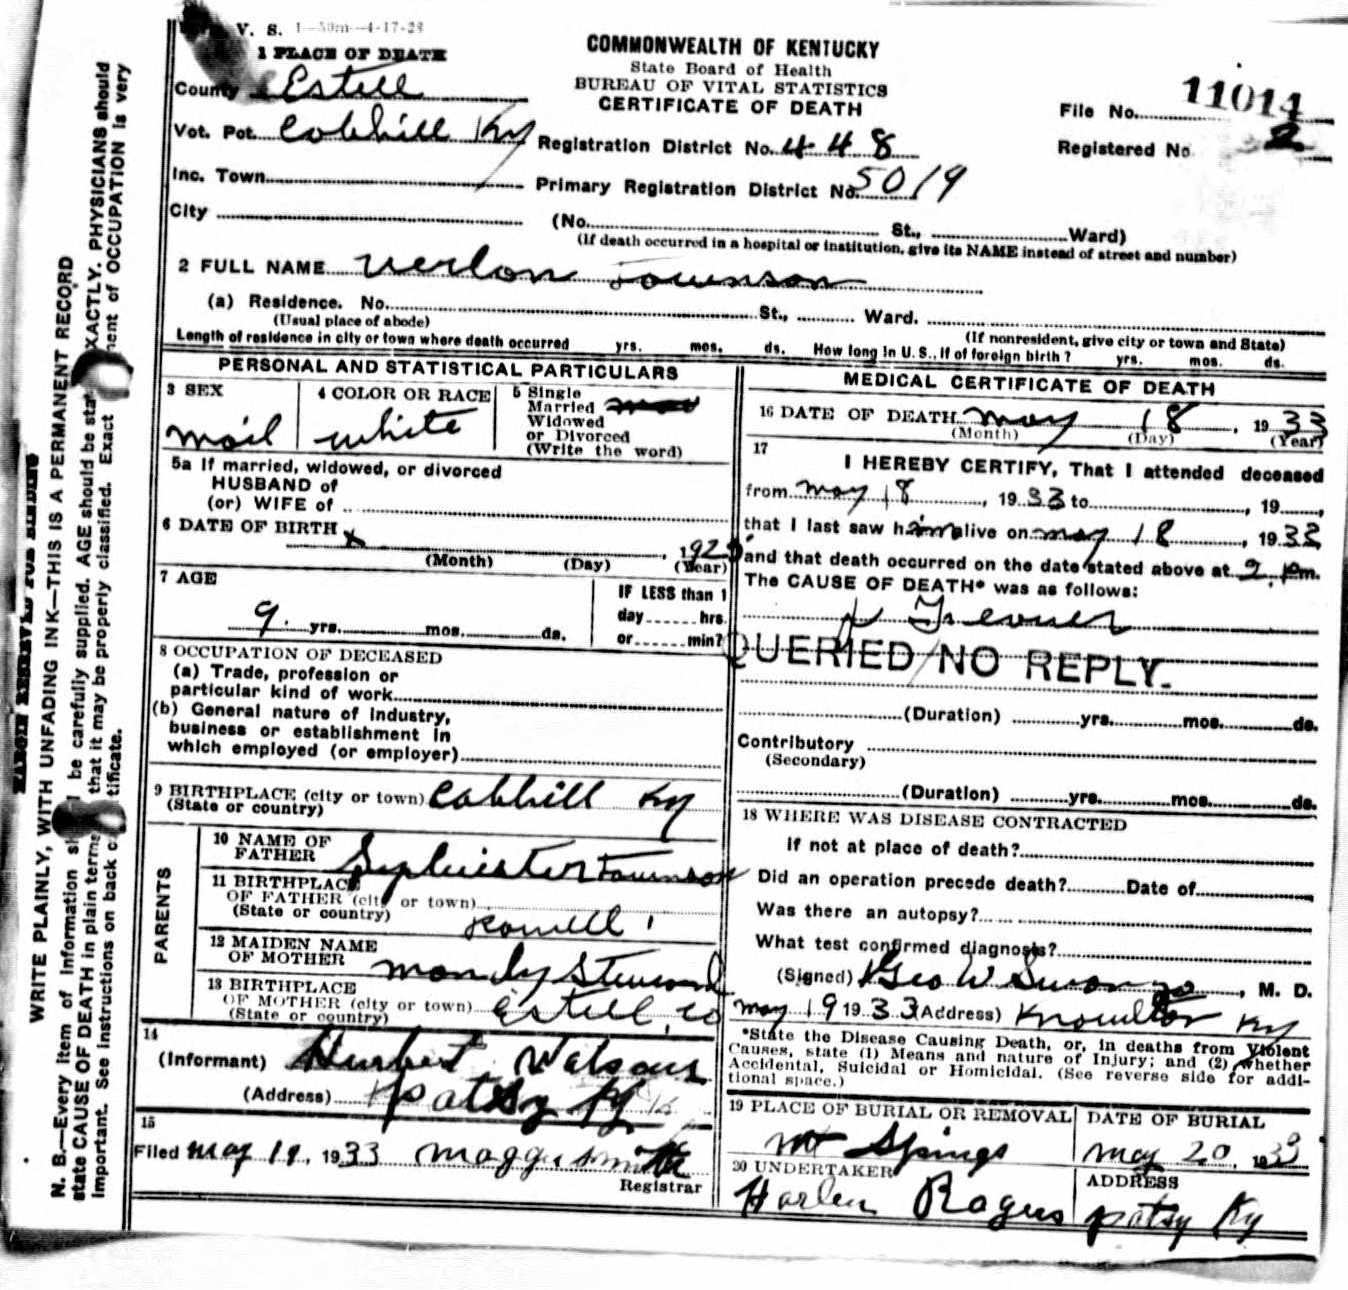 V. S. 1—50m—4-17-28
1 PLACE OF DEATH
COMMONWEALTH OF KENTUCKY
State Board of Health
BUREAU OF VITAL STATISTICS
CERTIFICATE OF DEATH
County Estill
File No. 11014
Vot. Pct. Cobhill Ky
Registration District No. 448
Registered No 2
Inc. Town
Primary Registration District No. 5019
City (No. St., Ward)
(If death occurred in a hospital or institution, give its NAME instead of street and number)
2 FULL NAME Verlon Townson
(a) Residence. No. St., Ward.
(Usual place of abode) (If nonresident, give city or town and State)
Length of residence in city or town where death occurred yrs. mos. ds. How long in U. S., if of foreign birth? yrs. mos. ds.
PERSONAL AND STATISTICAL PARTICULARS
3 SEX
mail
4 COLOR OR RACE
white
5 Single
Married
Widowed
or Divorced
(Write the word)
5a If married, widowed, or divorced
HUSBAND of
(or) WIFE of
6 DATE OF BIRTH x , 192
(Month) (Day) (Year)
7 AGE
9 yrs. mos. ds.
IF LESS than 1
day hrs.
or min?
8 OCCUPATION OF DECEASED
(a) Trade, profession or
particular kind of work
(b) General nature of industry,
business or establishment in
which employed (or employer)
9 BIRTHPLACE (city or town) Cobhill Ky
(State or country)
PARENTS
10 NAME OF
FATHER Townson
11 BIRTHPLACE
OF FATHER (city or town)
(State or country) Powell
12 MAIDEN NAME
OF MOTHER
13 BIRTHPLACE
OF MOTHER (city or town) Estill, co
(State or country)
14
(Informant) Hurbert
(Address) Patsy Ky
15
Filed May 19, 1933 Maggi Smith
Registrar
MEDICAL CERTIFICATE OF DEATH
16 DATE OF DEATH May 18, 1933
(Month) (Day) (Year)
17
I HEREBY CERTIFY, That I attended deceased
from May 18, 1933 to , 19
that I last saw him alive on May 18, 1933
and that death occurred on the date stated above at 2 Pm.
The CAUSE OF DEATH* was as follows:
QUERIED/NO REPLY.
(Duration) yrs. mos. ds.
Contributory
(Secondary)
(Duration) yrs. mos. ds.
18 WHERE WAS DISEASE CONTRACTED
If not at place of death?
Did an operation precede death? Date of
Was there an autopsy?
What test confirmed diagnosis?
(Signed) Geo W , M. D.
May 19 1933 (Address) Knowlton Ky
*State the Disease Causing Death, or, in deaths from Violent
Causes, state (1) Means and nature of Injury; and (2) whether
Accidental, Suicidal or Homicidal. (See reverse side for addi-
tional space.)
19 PLACE OF BURIAL OR REMOVAL
Mt Springs
DATE OF BURIAL
May 20, 1933
20 UNDERTAKER
Harlen Rogers
ADDRESS
Patsy Ky
MARGIN RESERVED FOR BINDING
WRITE PLAINLY, WITH UNFADING INK—THIS IS A PERMANENT RECORD
N. B.—Every item of information be carefully supplied. AGE should be EXACTLY. PHYSICIANS should
state CAUSE OF DEATH in plain terms that it may be properly classified. Exact of OCCUPATION is very
important. See instructions on back